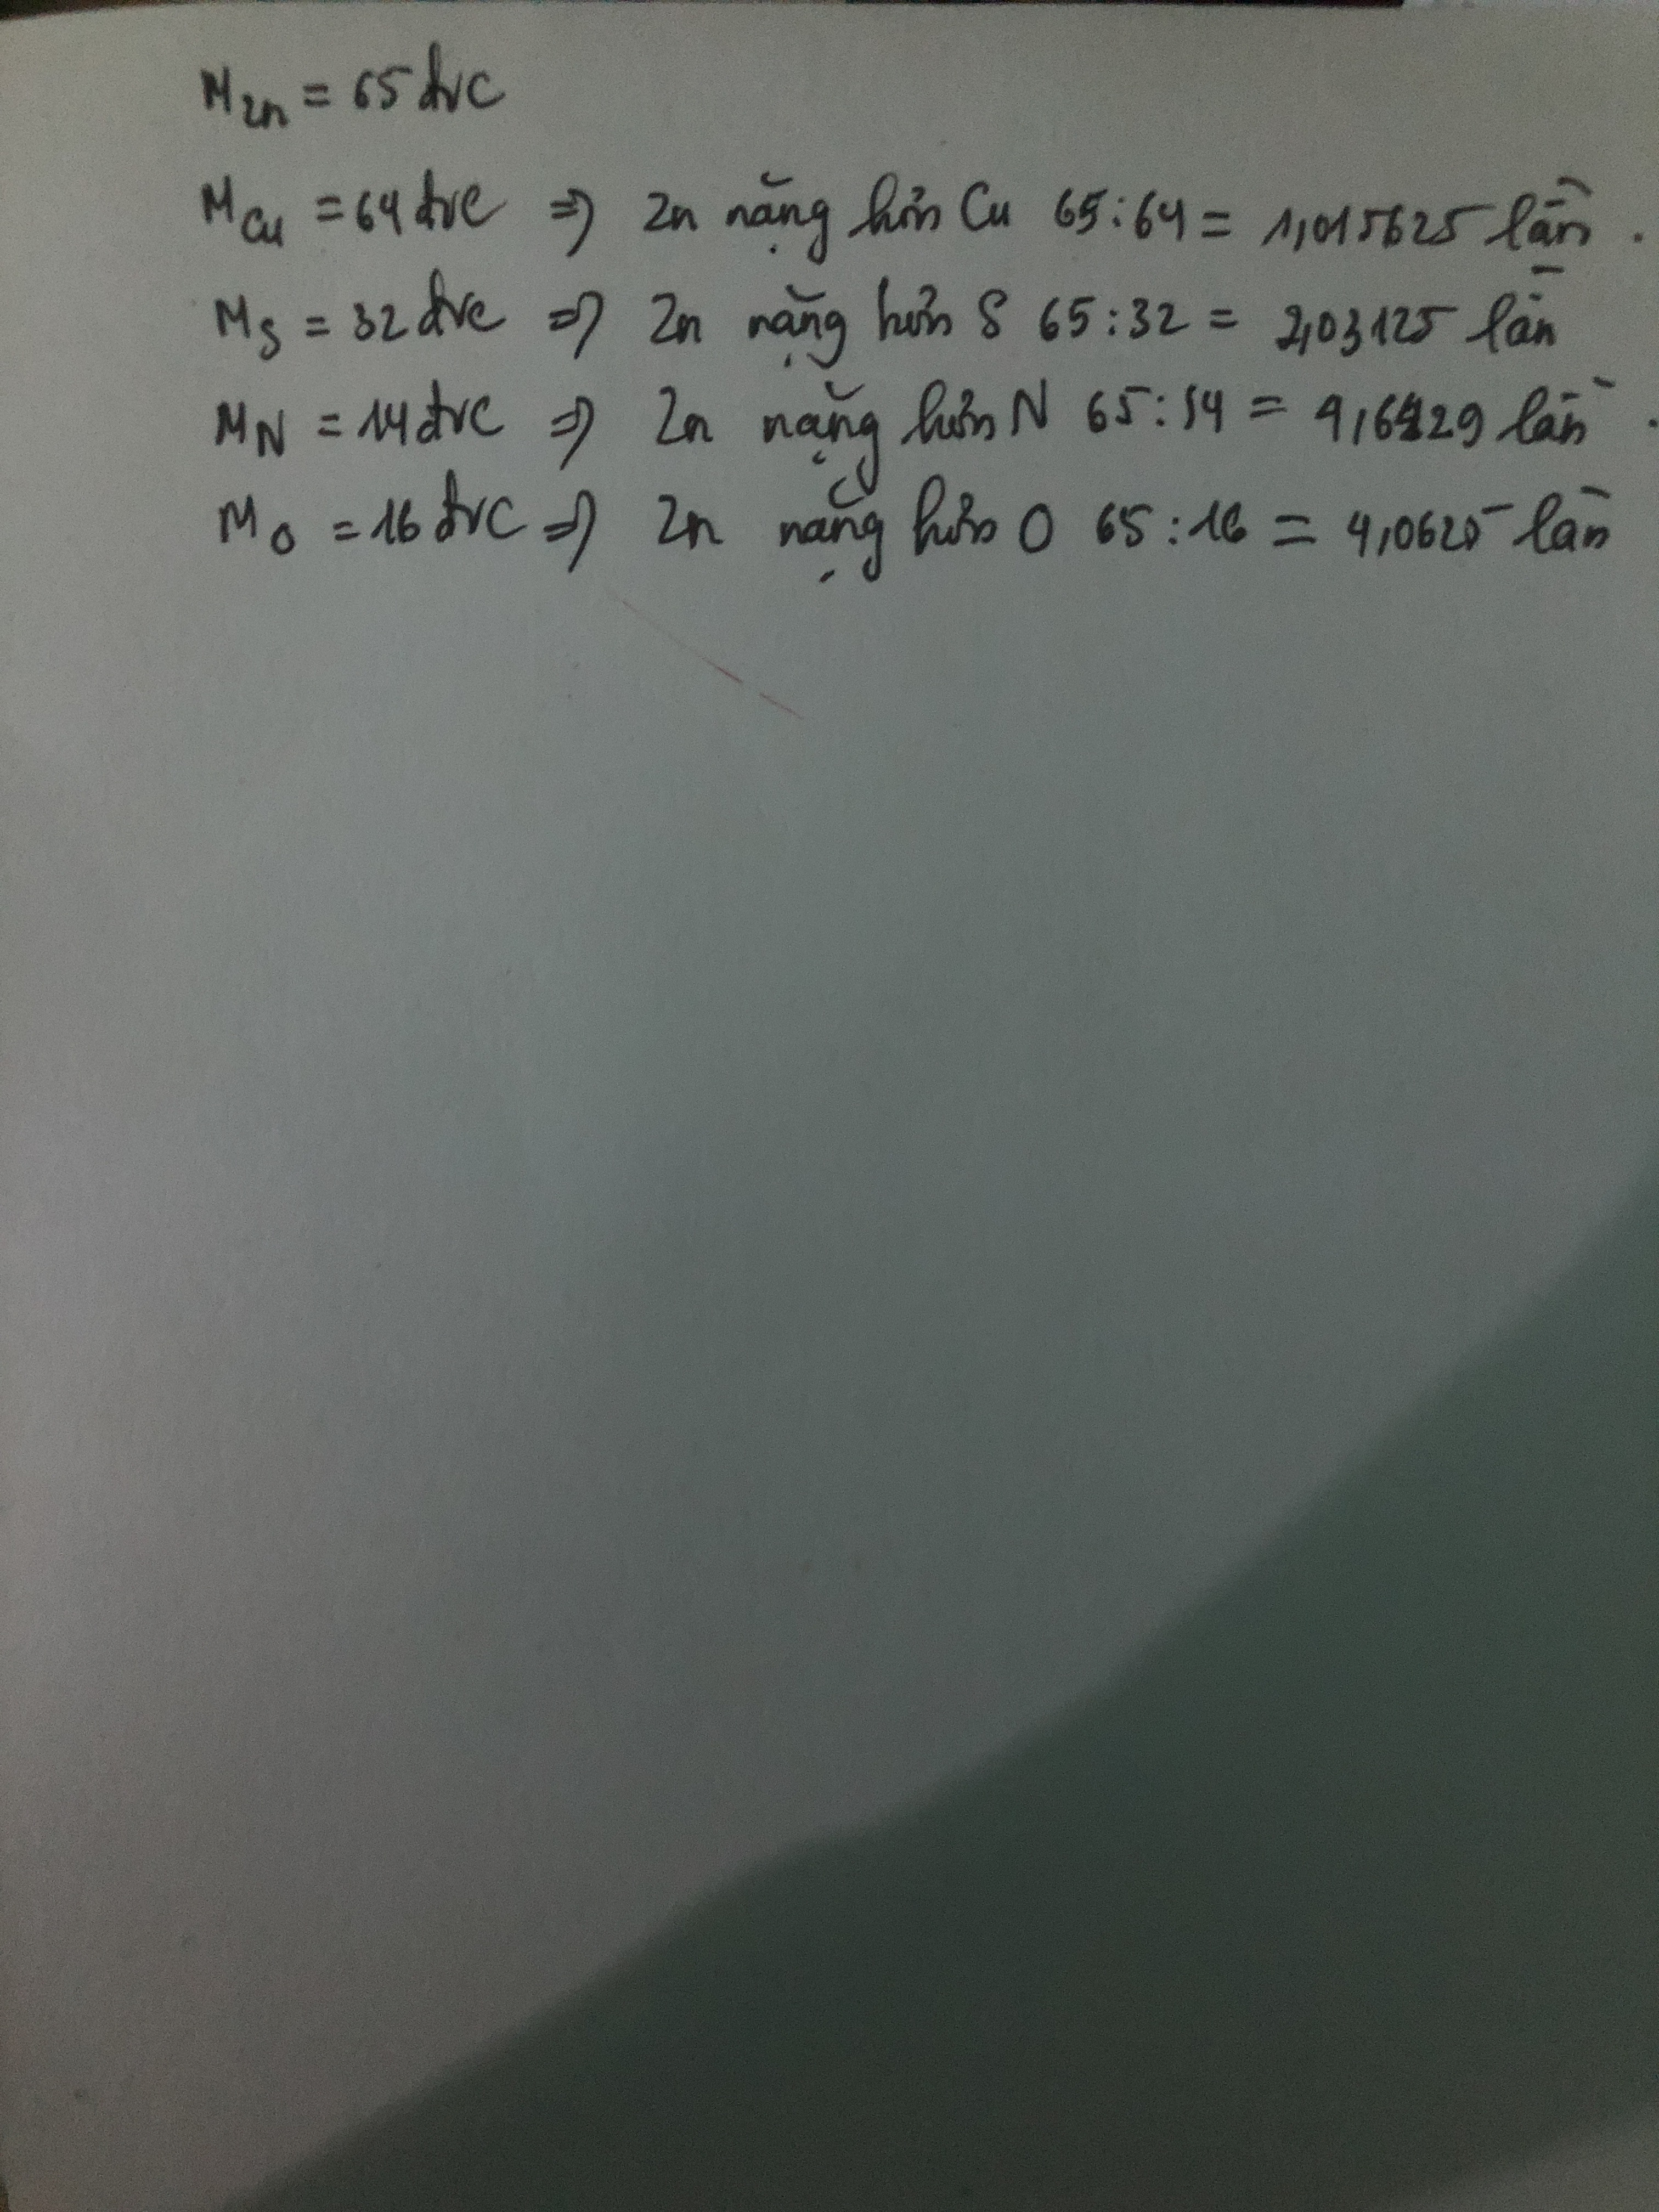 M Zn = 65 đvC
M Cu = 64 đvC => Zn nặng hơn Cu 65:64 = 1,015625 lần.
M S = 32 đvC => Zn nặng hơn S 65:32 = 2,03125 lần
M N = 14 đvC => Zn nặng hơn N 65:14 = 4,6429 lần.
M O = 16 đvC => Zn nặng hơn O 65:16 = 4,0625 lần